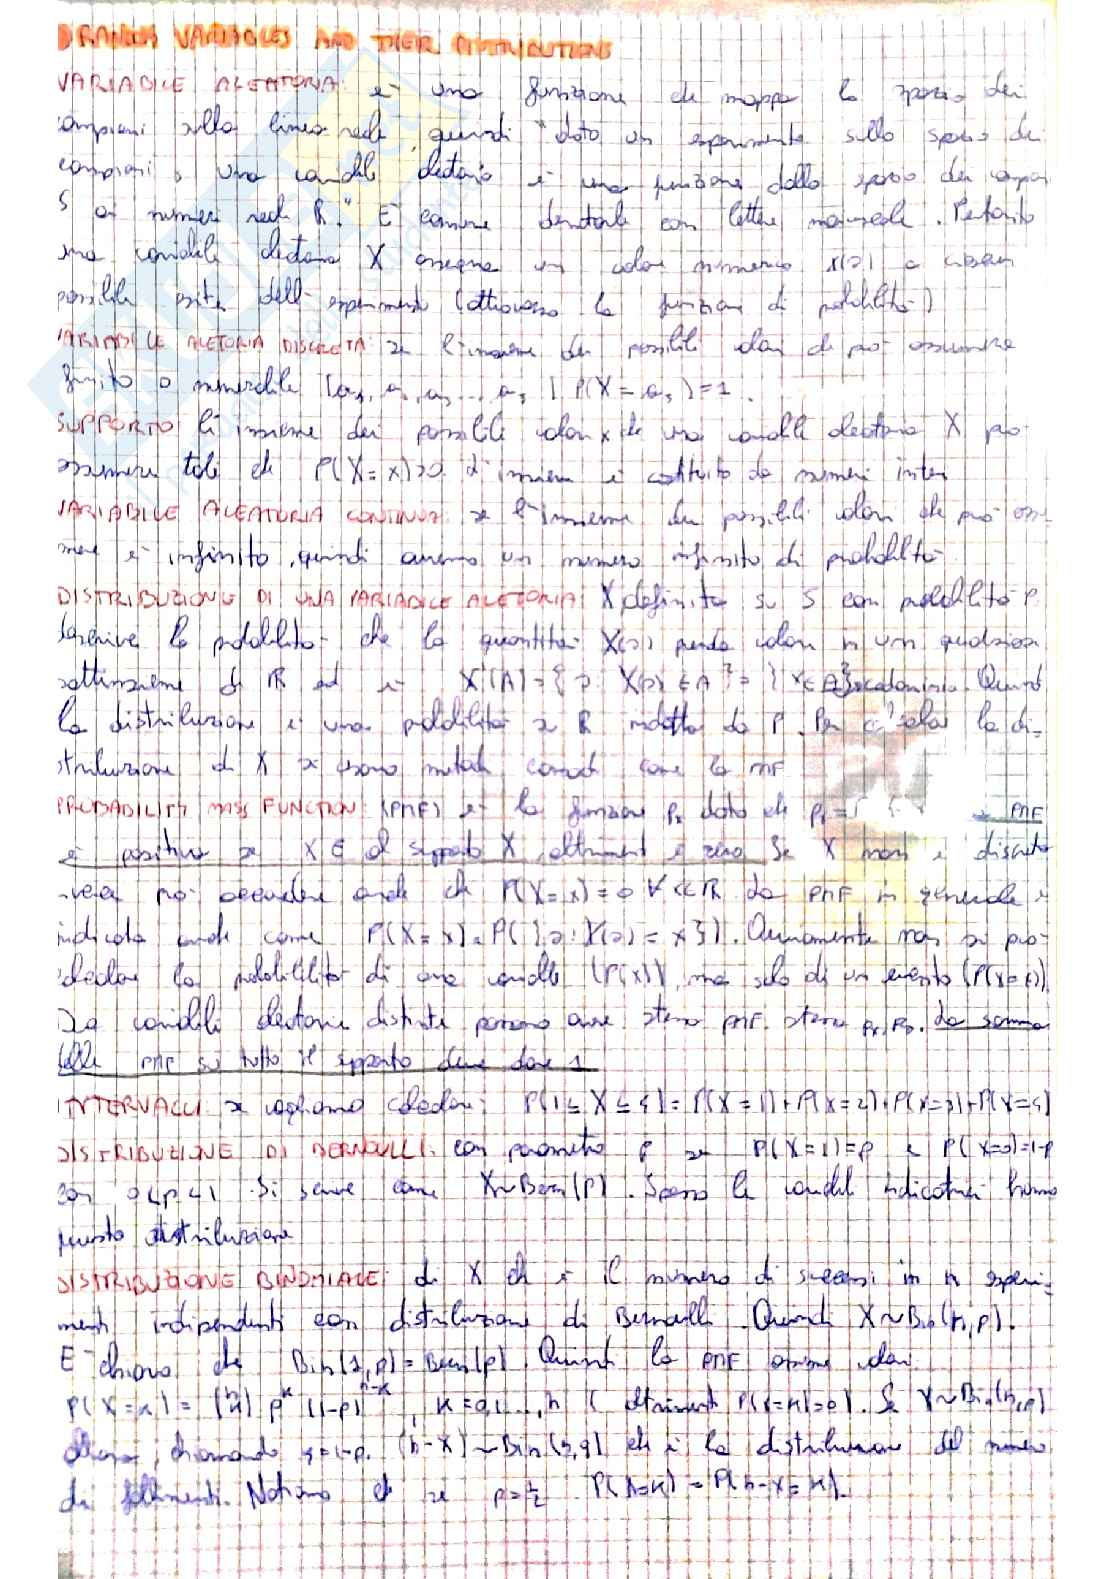 RANDOM VARIABLES AND THEIR DISTRIBUTIONS
VARIABILE ALEATORIA: è una funzione che mappa lo spazio dei
campioni sulla linea reale, quindi "dato un esperimento sullo spazio dei
campioni, una variabile aleatoria è una funzione dallo spazio dei campioni
S ai numeri reali R." È comune denotarle con lettere maiuscole. Pertanto
una variabile aleatoria X assegna un valore numerico X(s) a ciascun
possibile esito dell'esperimento (attraverso la funzione di probabilità)
VARIABILE ALETORIA DISCRETA: se l'insieme dei possibili valori che può assumere
finito o numerabile P(X = a) = 1.
SUPPORTO: l'insieme dei possibili valori x che una variabile aleatoria X può
assumere tale che P(X = x) > 0. L'insieme è costituito da numeri interi
VARIABILE ALEATORIA CONTINUA: se l'insieme dei possibili valori che può assu-
mere è infinito, quindi avremo un numero infinito di probabilità
DISTRIBUZIONE DI UNA VARIABILE ALETORIA: X definita su S con probabilità P
descrive la probabilità che la quantità X(s) prenda valori in un qualsiasi
sottinsieme di R ed è X (A) = {s: X(s) ∈ A} = {X ∈ A}. Quindi
la distribuzione è una probabilità su R indotta da P. Per calcolare la di-
stribuzione di X si usano metodi comodi come la PMF
PROBABILITY MASS FUNCTION: (PMF) è la funzione px data che px = PMF
è positiva se X ∈ al supporto X, altrimenti è zero. Se X non è discreta
può accadere anche che P(X = x) = 0 ∀ x ∈ R. La PMF in generale è
indicata anche come P(X = x) = P({s: X(s) = x}). Ovviamente non si può
calcolare la probabilità di una variabile (P(X)), ma solo di un evento (P(X = x)).
variabili aleatorie distinte possono avere stessa PMF. La somma
delle PMF su tutto il supporto deve dare 1
INTERVALLI: se vogliamo calcolare: P(1 ≤ X ≤ 4) = P(X = 1) + P(X = 2) + P(X = 3) + P(X = 4)
DISTRIBUZIONE DI BERNOULLI: con parametro p se P(X = 1) = p e P(X = 0) = 1-p
con 0 < p < 1. Si scrive come X ~ Bern(p). Spesso le variabili indicatrici hanno
questa distribuzione
DISTRIBUZIONE BINOMIALE: di X che è il numero di successi in n esperi-
menti indipendenti con distribuzione di Bernoulli. Quindi X ~ Bin(n,p).
È chiaro che Bin(1,p) = Bern(p). Quindi la PMF assume valori
P(X = k) = (n k) p^k (1-p)^n-k, k = 0,1,...,n (altrimenti P(X = k) = 0). Se X ~ Bin(n,p)
allora, chiamando q = 1-p, (n-X) ~ Bin(n,q) che è la distribuzione del numero
di fallimenti. Notiamo che se p = 1/2 P(X = k) = P(n-X = k).